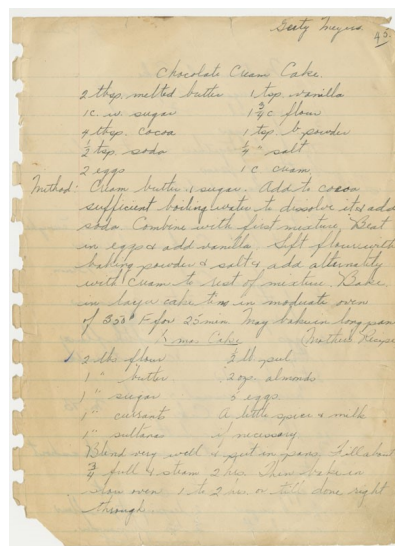 Betty Meyers
45.
Chocolate Cream Cake.
2 tbsp. melted butter 1 tsp. vanilla
1 c. sugar 1 3/4 c flour
4 tbsp. cocoa 1 tsp. b. powder
1/2 tsp. soda 1/4 " salt
2 eggs 1 c cream
Method: Cream butter & sugar. Add to cocoa
sufficient boiling water to dissolve it & add
soda. Combine with first mixture. Beat
in eggs & add vanilla. Sift flour with
baking powder & salt & add alternately
with cream to rest of mixture. Bake
in layer cake tins in moderate oven
of 350° F for 25 min May bake in long pan
Xmas Cake (Mother's Recipe
2 lbs flour 1/2 lb. peel
1 " butter 2 oz. almonds
1 " sugar eggs
1 " currant A little spice & milk
1 " sultana if necessary
Blend very well & put in pans. Fill about
3/4 full & steam 2 hrs. Then bake in
slow oven 1 to 2 hrs. or till done right
through.